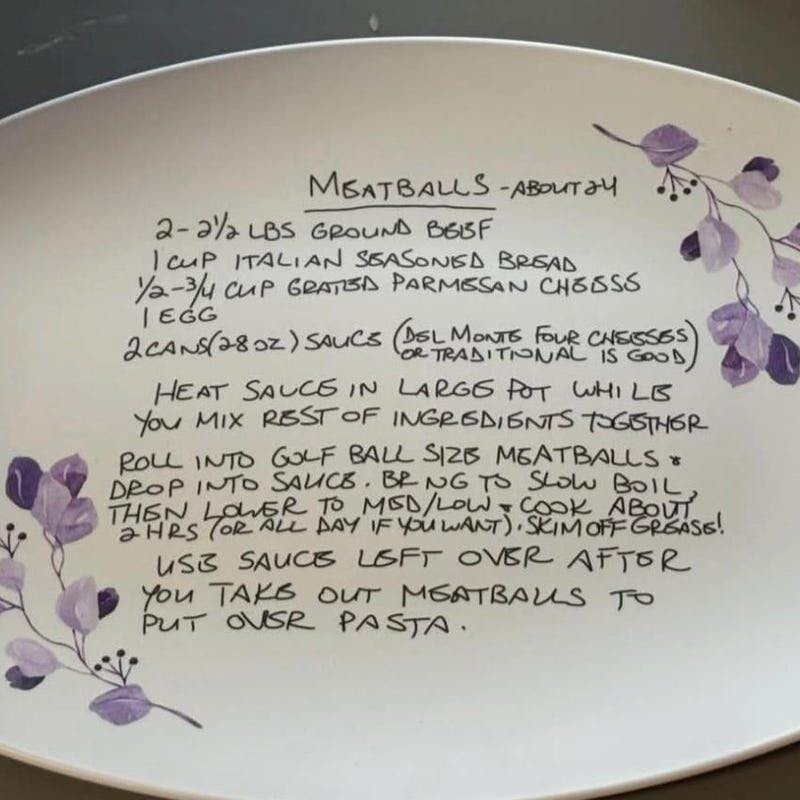 MEATBALLS - ABOUT 24
2 - 2 1/2 LBS GROUND BEEF
1 CUP ITALIAN SEASONED BREAD
1/2 - 3/4 CUP GRATED PARMESAN CHEESE
1 EGG
2 CANS (28 OZ) SAUCE (DEL MONTE FOUR CHEESES
OR TRADITIONAL IS GOOD)
HEAT SAUCE IN LARGE POT WHILE
YOU MIX REST OF INGREDIENTS TOGETHER
ROLL INTO GOLF BALL SIZE MEATBALLS &
DROP INTO SAUCE. BRNG TO SLOW BOIL,
THEN LOWER TO MED/LOW & COOK ABOUT
2 HRS (OR ALL DAY IF YOU WANT). SKIM OFF GREASE!
USE SAUCE LEFT OVER AFTER
YOU TAKE OUT MEATBALLS TO
PUT OVER PASTA.